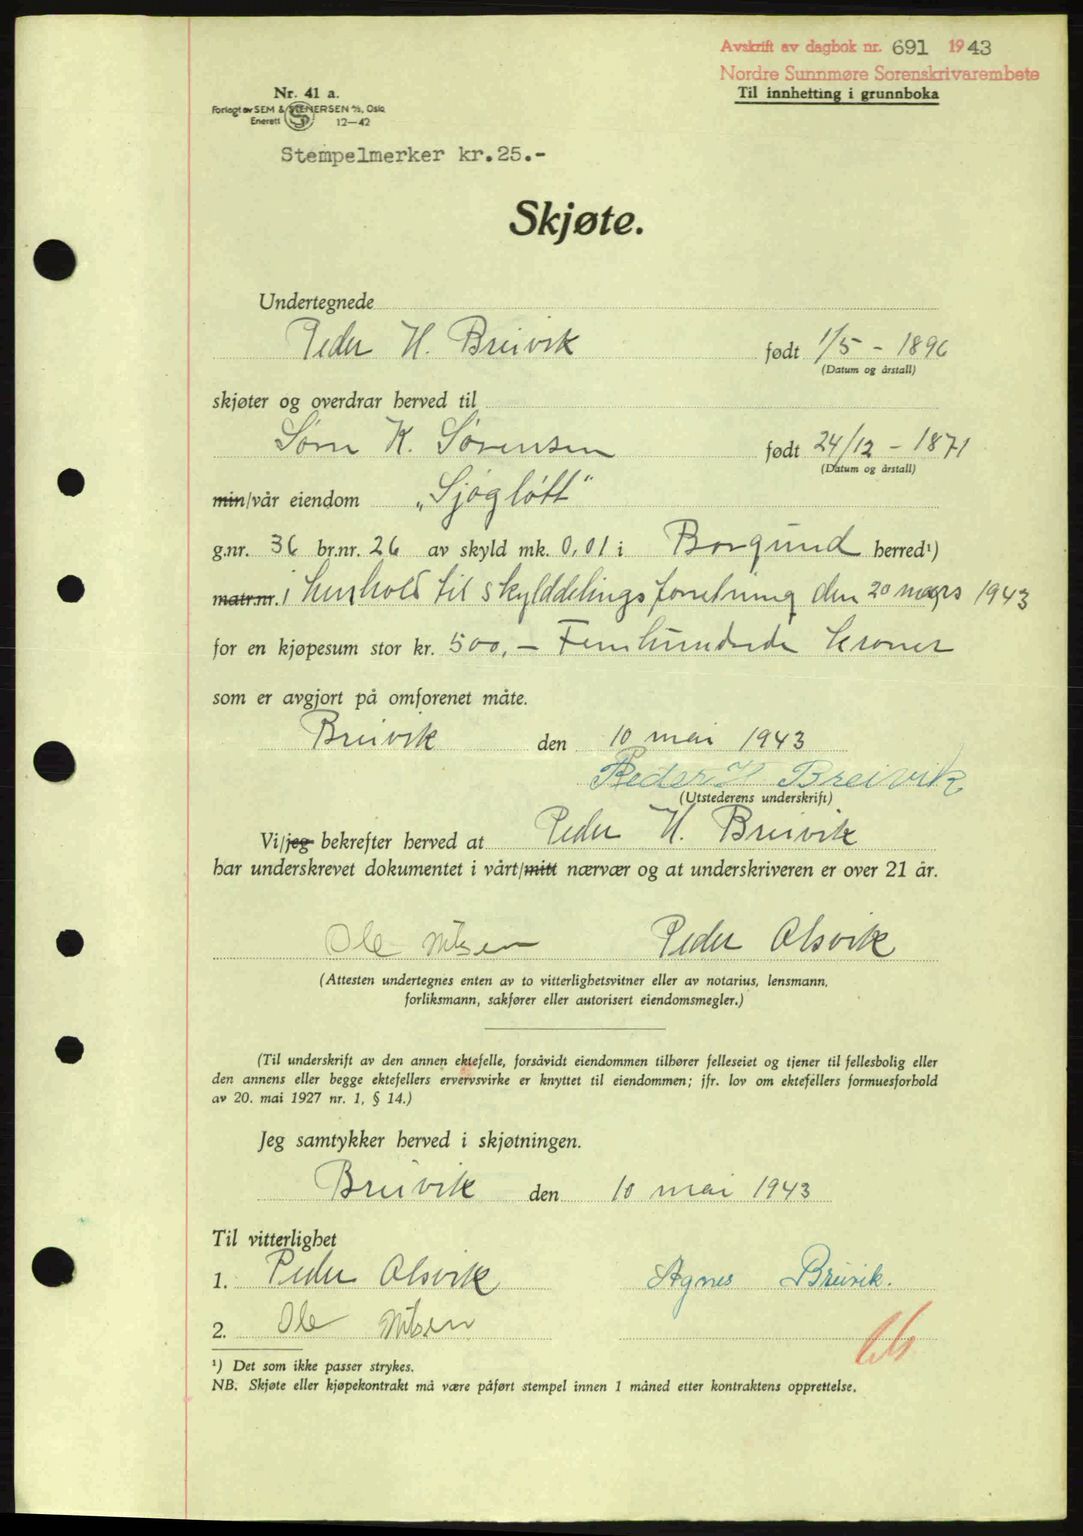 Avskrift av dagbok nr. 691 1943
Nordre Sunnmøre Sorenskrivarembete
Til innhetting i grunnboka
Nr. 41 a.
Forlagt av SEM & STENERSEN A/S, Oslo
Enerett S 12—42
Stempelmerker kr.25.-
Skjøte.
Undertegnede
Peder H. Breivik født 1/5 - 1896
(Datum og årstall)
skjøter og overdrar herved til
Søren K. Sørensen født 24/12 - 1871
(Datum og årstall)
min/vår eiendom „Sjøgløtt"
g.nr. 36 br.nr. 26 av skyld mk. 0,01 i Borgund herred¹)
matr.nr. i henhold til skylddelingsforretning den 20 mars 1943
for en kjøpesum stor kr. 500,- Femhundrede kroner
som er avgjort på omforenet måte.
Breivik den 10 mai 1943
Peder H Breivik
(Utstederens underskrift)
Vi/jeg bekrefter herved at Peder H. Breivik
har underskrevet dokumentet i vårt/mitt nærvær og at underskriveren er over 21 år.
Ole Nilsen Peder Alsvik
(Attesten undertegnes enten av to vitterlighetsvitner eller av notarius, lensmann,
forliksmann, sakfører eller autorisert eiendomsmegler.)
(Til underskrift av den annen ektefelle, forsåvidt eiendommen tilhører felleseiet og tjener til fellesbolig eller
den annens eller begge ektefellers ervervsvirke er knyttet til eiendommen; jfr. lov om ektefellers formuesforhold
av 20. mai 1927 nr. 1, § 14.)
Jeg samtykker herved i skjøtningen.
Breivik den 10 mai 1943
Til vitterlighet
1. Peder Alsvik Agnes Breivik.
2. Ole Nilsen
¹) Det som ikke passer strykes.
NB. Skjøte eller kjøpekontrakt må være påført stempel innen 1 måned etter kontraktens opprettelse.